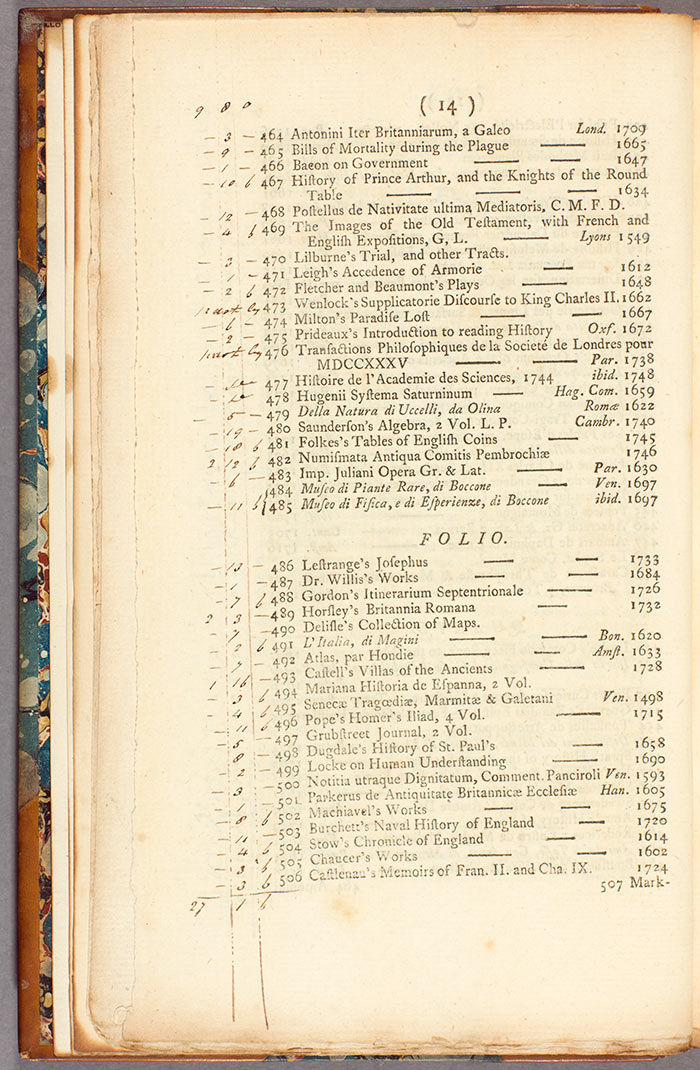 9 8 0
( 14 )
– 3 – 464 Antonini Iter Britanniarum, a Galeo Lond. 1709
– 9 – 465 Bills of Mortality during the Plague —— 1665
– 1 – 466 Bacon on Government —— — 1647
– 10 6 467 Hiſtory of Prince Arthur, and the Knights of the Round
Table —— —— — 1634
– 12 – 468 Poſtellus de Nativitate ultima Mediatoris, C. M. F. D.
– 4 6 469 The Images of the Old Teſtament, with French and
Engliſh Expoſitions, G, L. —— Lyons 1549
– 3 – 470 Lilburne's Trial, and other Tracts.
– 1 – 471 Leigh's Accedence of Armorie — 1612
– 2 6 472 Fletcher and Beaumont's Plays —— 1648
473 Wenlock's Supplicatorie Diſcourſe to King Charles II. 1662
– 6 – 474 Milton's Paradiſe Loſt —— — 1667
– 2 – 475 Prideaux's Introduction to reading Hiſtory Oxf. 1672
476 Tranſactions Philoſophiques de la Societé de Londres pour
MDCCXXXV —— —— Par. 1738
477 Hiſtoire de l'Academie des Sciences, 1744 ibid. 1748
478 Hugenii Syſtema Saturninum — Hag. Com. 1659
– 5 – 479 Della Natura di Uccelli, da Olina Romæ 1622
– 19 – 480 Saunderſon's Algebra, 2 Vol. L. P. Cambr. 1740
– 18 6 481 Folkes's Tables of Engliſh Coins — 1745
2 12 6 482 Numiſmata Antiqua Comitis Pembrochiæ 1746
– 6 – 483 Imp. Juliani Opera Gr. & Lat. —— Par. 1630
484 Muſeo di Piante Rare, di Boccone — Ven. 1697
– 11 6 485 Muſeo di Fiſica, e di Eſperienze, di Boccone ibid. 1697
FOLIO.
– 13 – 486 Leſtrange's Joſephus —— — 1733
– 1 – 487 Dr. Willis's Works — — 1684
– 7 6 488 Gordon's Itinerarium Septentrionale — 1726
2 3 – 489 Horſley's Britannia Romana — 1732
– 7 – 490 Deliſle's Collection of Maps.
– 2 6 491 L'Italia, di Magini —— — Bon. 1620
– 7 – 492 Atlas, par Hondie —— — Amſt. 1633
1 16 – 493 Caſtell's Villas of the Ancients —— 1728
– 3 6 494 Mariana Hiſtoria de Eſpanna, 2 Vol.
– 4 6 495 Senecæ Tragœdiæ, Marmitæ & Galetani Ven. 1498
– 11 6 496 Pope's Homer's Iliad, 4 Vol. —— 1715
– 5 – 497 Grubſtreet Journal, 2 Vol.
– 8 – 498 Dugdale's Hiſtory of St. Paul's — 1658
– 2 – 499 Locke on Human Underſtanding —— 1690
– 3 – 500 Notitia utraque Dignitatum, Comment. Panciroli Ven. 1593
– 1 – 501 Parkerus de Antiquitate Britannicæ Eccleſiæ Han. 1605
– 8 6 502 Machiavel's Works —— — 1675
– 11 – 503 Burchett's Naval Hiſtory of England — 1720
– 4 6 504 Stow's Chronicle of England — 1614
– 3 6 505 Chaucer's Works —— —— 1602
– 3 6 506 Caſtlenau's Memoirs of Fran. II. and Cha. IX. 1724
27 1 6
507 Mark-